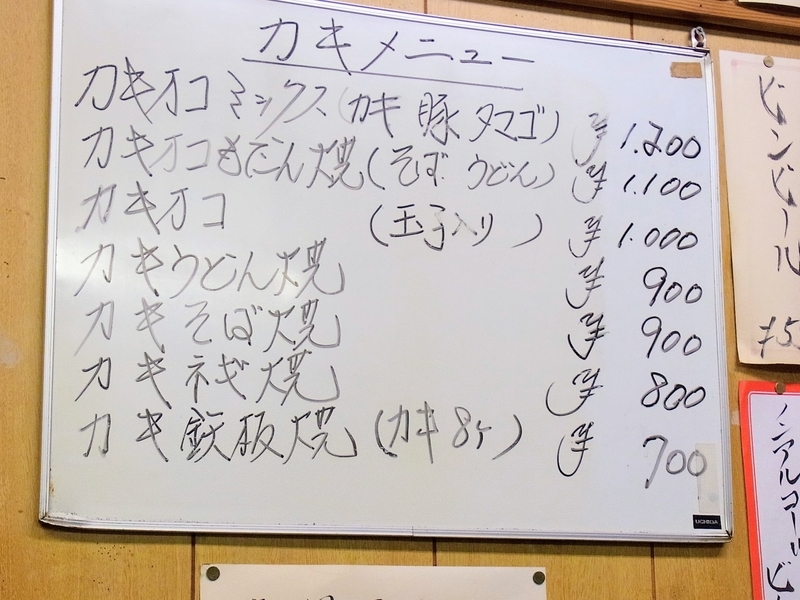 カキメニュー
カキオコミックス(カキ 豚 タマゴ) ¥1.200
カキオコもだん焼(そば うどん) ¥1.100
カキオコ (玉子入り) ¥1.000
カキうどん焼 ¥900
カキそば焼 ¥900
カキネギ焼 ¥800
カキ鉄板焼(カキ8ヶ) ¥700
UCHIDA
ビンビール
ノンアルコールビ